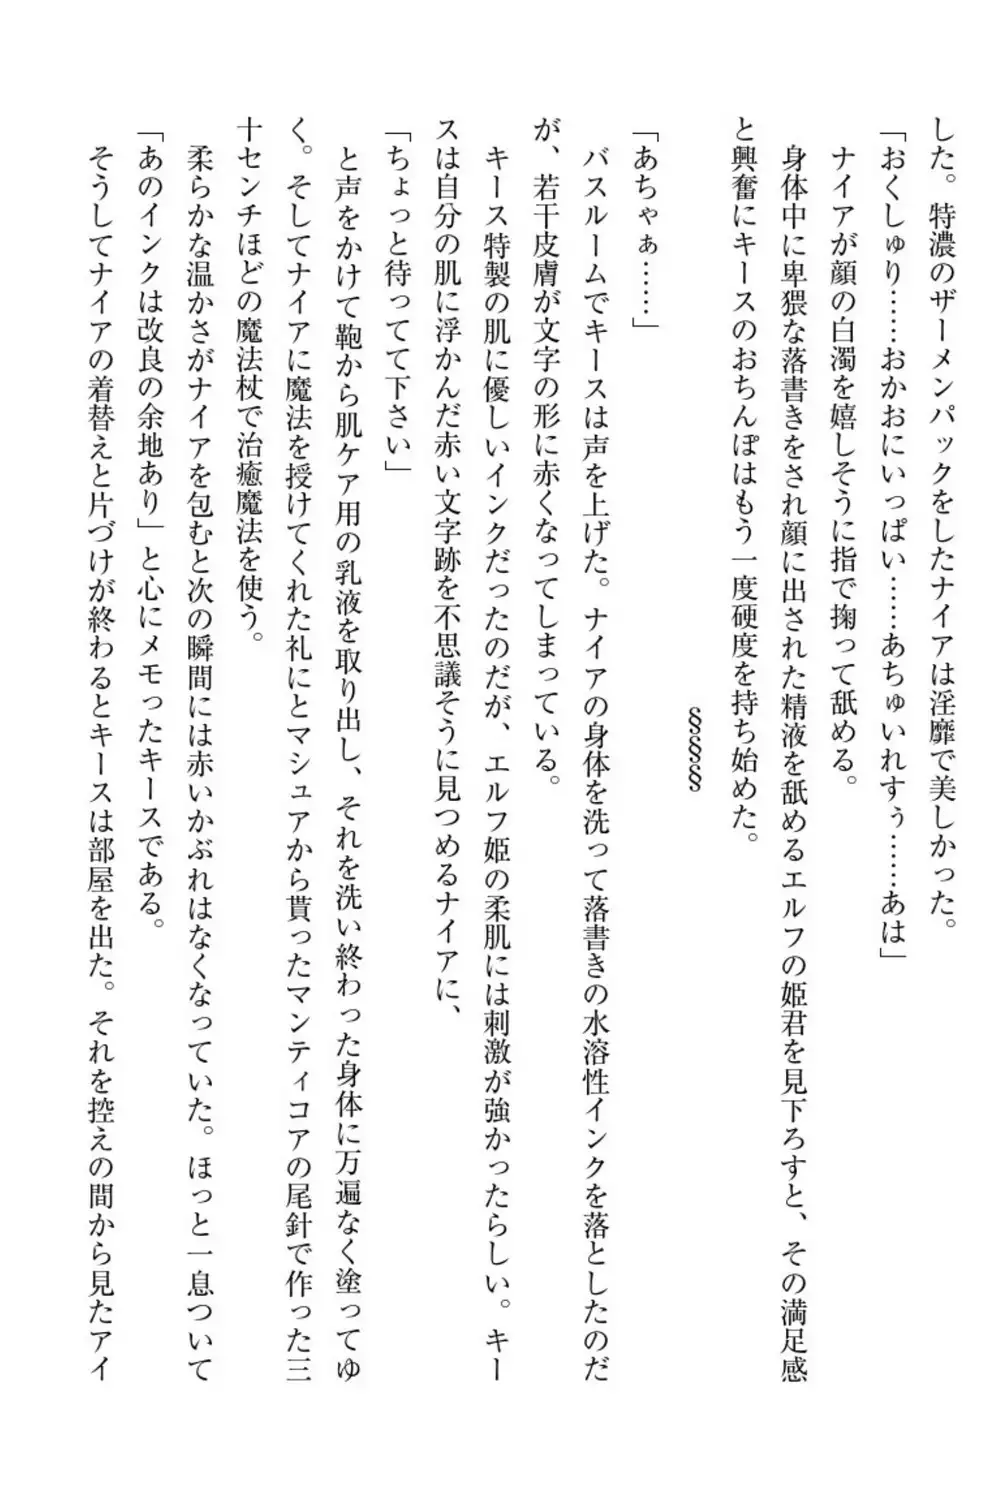 した。特濃のザーメンパックをしたナイアは淫靡で美しかった。
「おくしゅり……おかおにいっぱい……あちゅいれすぅ……あは」
ナイアが顔の白濁を嬉しそうに指で掬って舐める。
身体中に卑猥な落書きをされ顔に出された精液を舐めるエルフの姫君を見下ろすと、その満足感
と興奮にキースのおちんぽはもう一度硬度を持ち始めた。
§§§
「あちゃぁ……」
バスルームでキースは声を上げた。ナイアの身体を洗って落書きの水溶性インクを落としたのだ
が、若干皮膚が文字の形に赤くなってしまっている。
キース特製の肌に優しいインクだったのだが、エルフ姫の柔肌には刺激が強かったらしい。キー
スは自分の肌に浮かんだ赤い文字跡を不思議そうに見つめるナイアに、
「ちょっと待ってて下さい」
と声をかけて鞄から肌ケア用の乳液を取り出し、それを洗い終わった身体に万遍なく塗ってゆ
く。そしてナイアに魔法を授けてくれた礼にとマシュアから貰ったマンティコアの尾針で作った三
十センチほどの魔法杖で治癒魔法を使う。
柔らかな温かさがナイアを包むと次の瞬間には赤いかぶれはなくなっていた。ほっと一息ついて
「あのインクは改良の余地あり」と心にメモったキースである。
そうしてナイアの着替えと片づけが終わるとキースは部屋を出た。それを控えの間から見たアイ